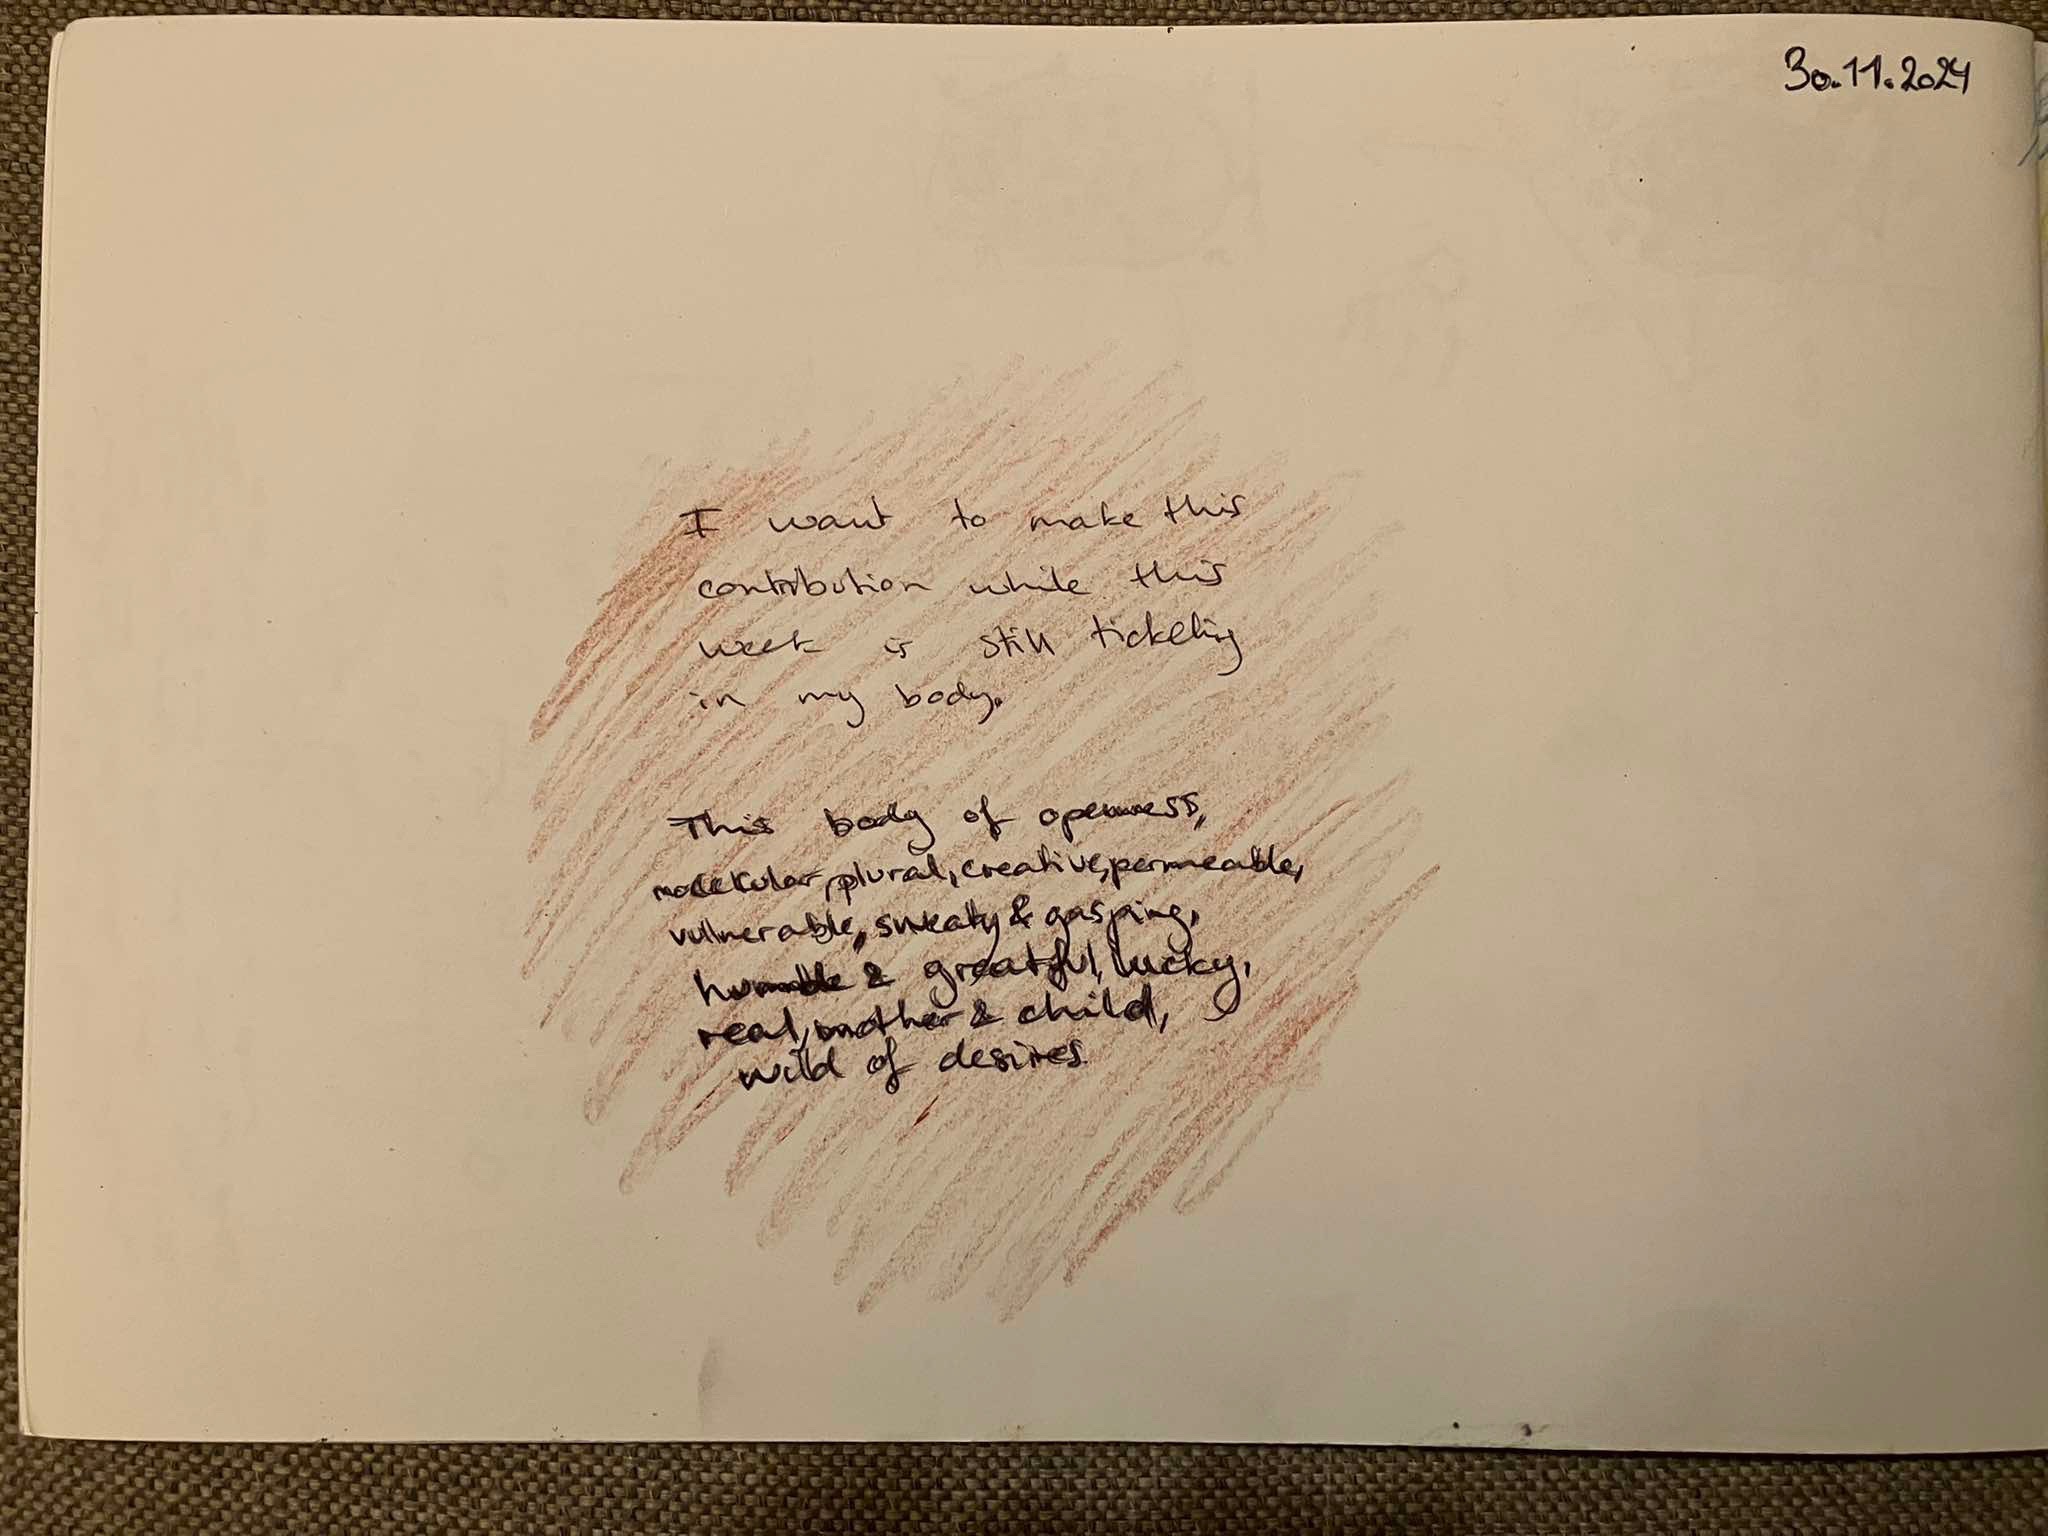 30.11.2024
I want to make this
contribution while this
week is still tickeling
in my body.
This body of openness,
molekular, plural, creative, permeable,
vulnerable, sweaty & gasping,
humble & greatful, lucky,
real, mother & child,
wild of desires.